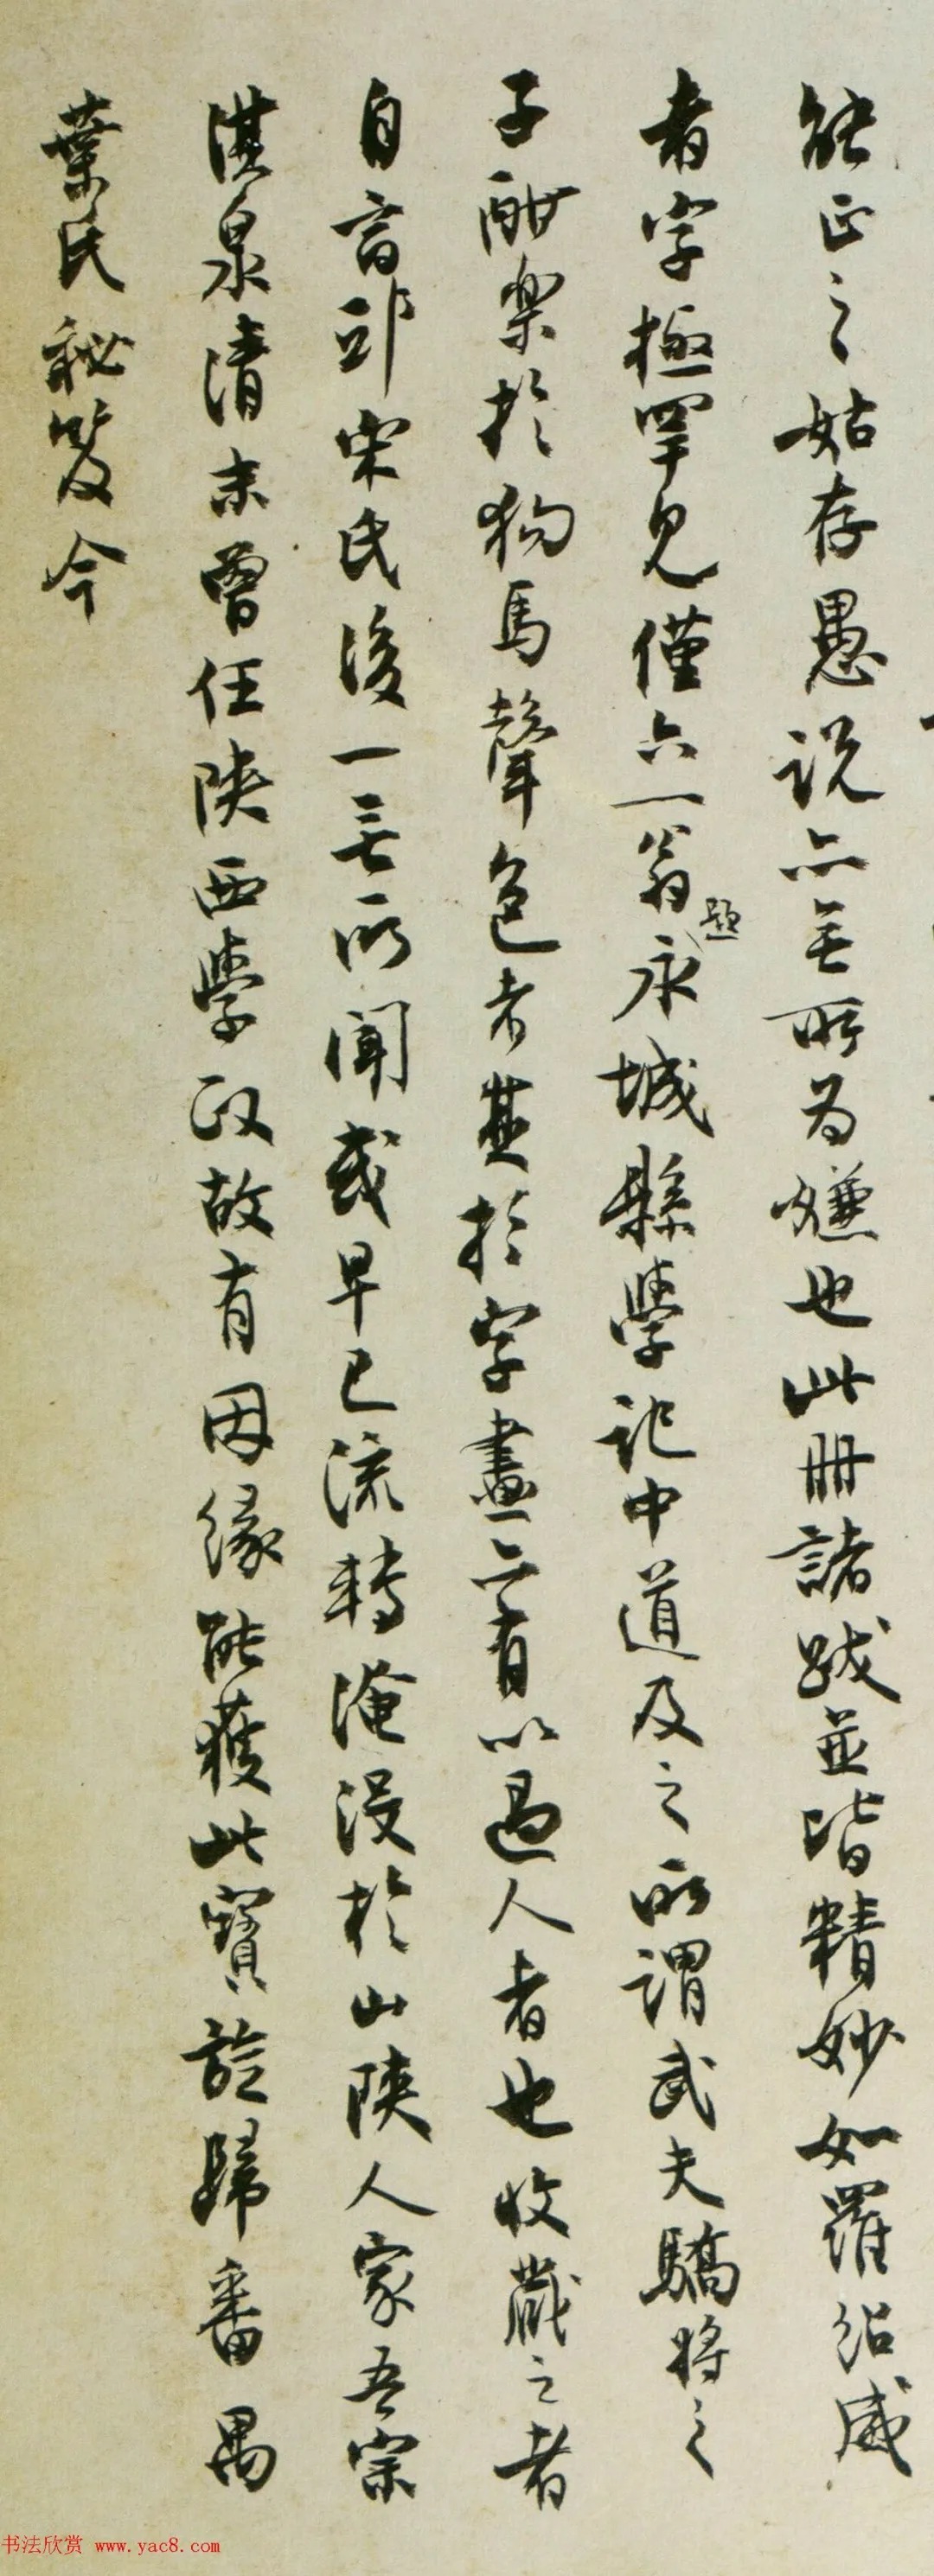 能正之姑存愚说亦無所为嫌也此冊諸跋並皆精妙如羅紹威
者字極罕见僅六一翁題永城縣學記中道及之所謂武夫驕將之
子酣楽於狗馬聲色者其於字畫亦有以過人者也收藏之者
自言邱宋氏後一無所聞或早已流轉淹没於山陕人家吾宗
淇泉清末曾任陕西學政故有因缘能獲此寳旋歸番禺
葉氏秘笈今
书法欣赏 www.yac8.com